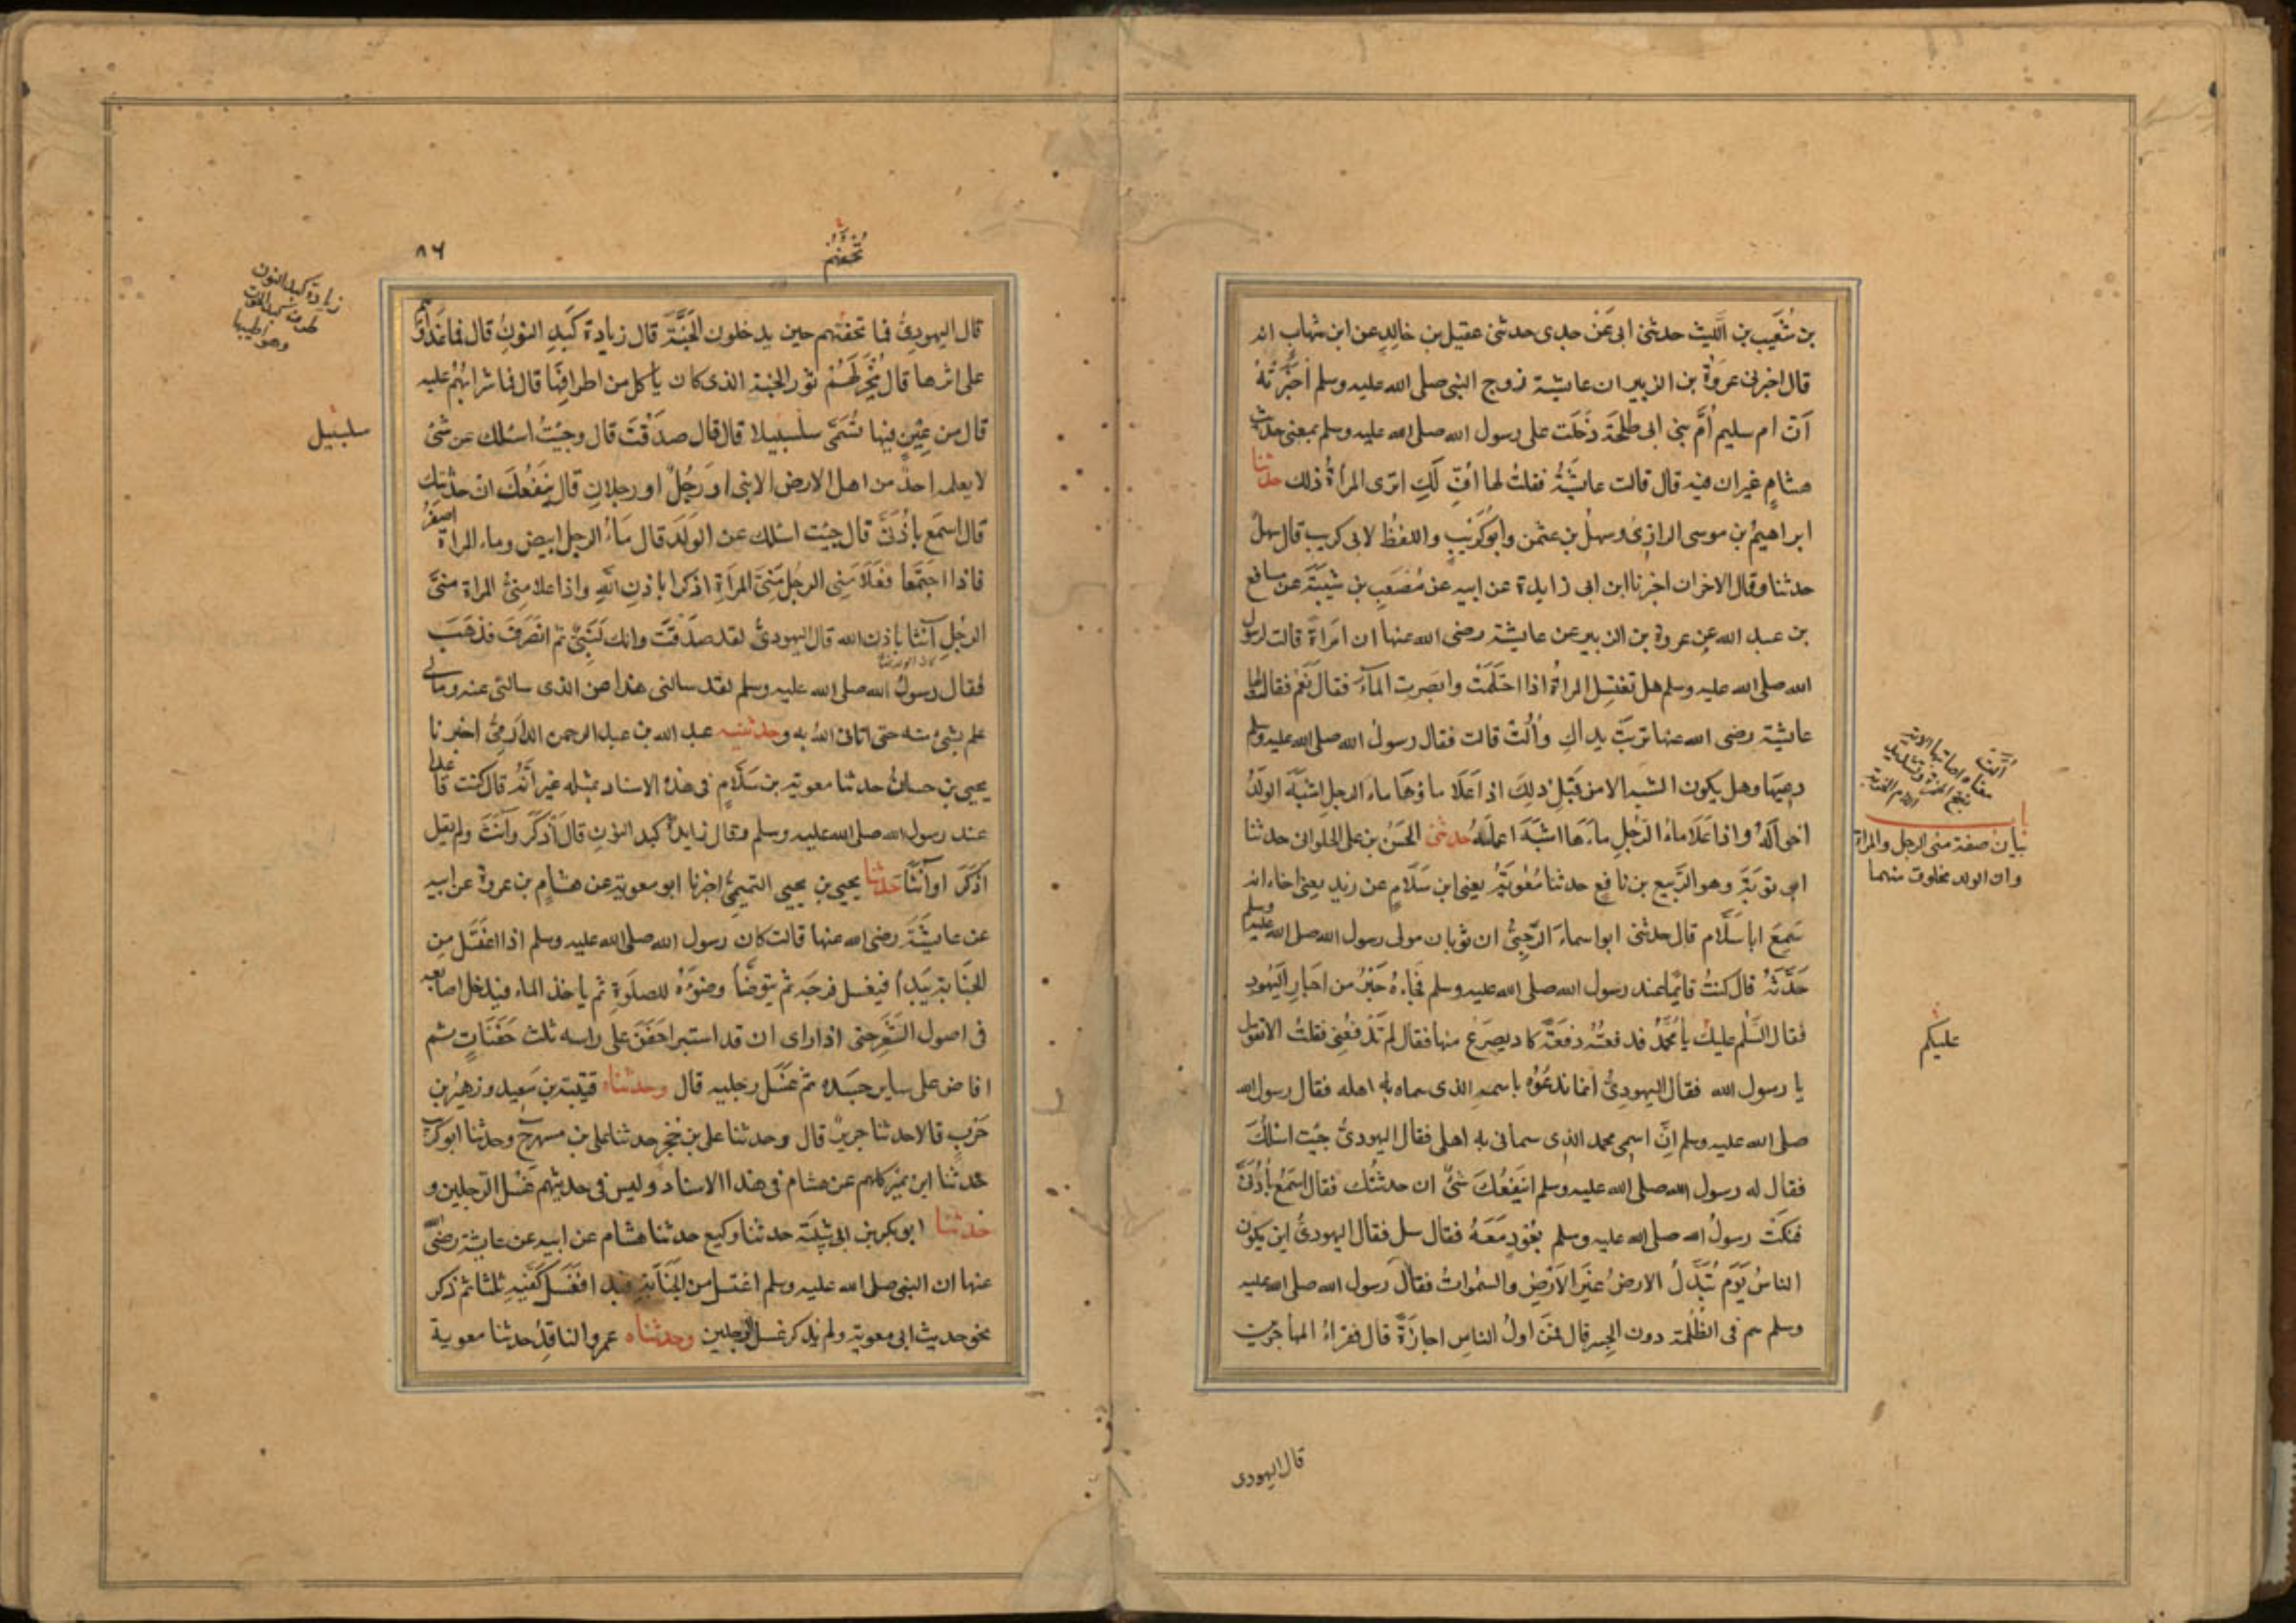 بن شُعَيب بن اللَّيث حدثنى ابى عَنْ جدى حدثنى عقيل بن خالدٍ عن ابن شهاب انه
قال اخبرنى عروةُ بن الزبير ان عايشة زوج النبى صلى الله عليه وسلم اَخبَرَتْهُ
اَنّ ام سليم اُمَّ بنى ابى طلحَة دَخَلَت على رسول الله صلى الله عليه وسلم بمعنى حديث
هشامٍ غير ان فيه قال قالت عايشَةُ فقلتُ لها اُفٍّ لَكِ اترى المراةُ ذلك حدثنا
ابراهيمُ بن موسى الرازىُ وسهلُ بن عثمن وابو كُرَيبٍ واللفظ لابى كريب قال سهلٌ
حدثنا وقال الاخران اخبرنا ابن ابى زايدة عن ابيه عن مُصعَبِ بن شيبَةَ عن مسافع
بن عبد الله عن عروة بن الزبير عن عايشة رضى الله عنها ان امَراةً قالت لرسول
الله صلى الله عليه وسلم هل تغتسل المراةُ اذا احتَلَمَتْ وابصَرت المآءَ فقال نَعَم فقالت لها
عايشة رضى الله عنها تَرِبَتْ يداكِ واُلّتْ قالت فقال رسولُ الله صلى الله عليه وسلم
دعِيهَا وهل يكون الشبه الا من قِبَلِ ذلِكَ اذا عَلَا ماؤهَا ماءَ الرجلِ اشبَهَ الولَدُ
اخوالَهُ واذا عَلَا ماءُ الرَّجُلِ ماءَهَا اشبَهَ اعمامَهُ حدثنى الحَسَنُ بن على الحلوانى حدثنا
ابو توبَةَ وهو الرَّبيع بن نافِعٍ حدثنا مُعٰويَةُ يعنى ابن سَلّامٍ عن زيد يعنى اخاه انه
سَمِعَ ابا سَلَّام قال حدثنى ابو اسماءَ الرَّحبِىُّ ان ثوبان مولى رسول الله صلى الله عليه وسلم
حَدَّثَهُ قال كنتُ قايمًا عند رسول الله صلى الله عليه وسلم فجَاءهُ حَبْرٌ من احبارِ اليَهُودِ
فقال السَّلٰم عليك يا مُحَمَّدُ فدفعتُهُ دَفعَةً كاد يصرَعُ منها فقال لم تَدْفَعُنِى فقلتُ الا تقول
يا رسول الله فقال اليهودِىُّ انما ندعُوْهُ باسمهِ الذى سماه به اهله فقال رسول الله
صلى الله عليه وسلم اِنَّ اسمى محمد الذى سمانى به اهلى فقال اليهودىُّ جيت اسالُكَ
فقال له رسول الله صلى الله عليه وسلم اينفَعُكَ شَئٌ ان حدثتُكَ فقال اسمَعُ باُذُنَىَّ
فنكَتَ رسولُ الله صلى الله عليه وسلم بعُودٍ مَعَهُ فقال سل فقال اليهودىُّ اين يكون
الناسُ يَوْمَ تُبَدَّلُ الارضُ غَيرَ الاَرْضِ والسمٰواتُ فقال رسول الله صلى الله عليه
وسلم هم فى الظُلمَة دون الجِسر قال فمَن اولُ الناسِ اجازَةً قال فقراءُ المهاجرين
اُلّت معناه اصابتها الالة بفتح الهمزة وتشديد اللام الحربة
باب
بيان صفة منى الرجل والمراة
وان الولد مخلوق منهما
عليكم
قال اليهودى
٨٦
تُحفَتُهُم
قال اليهودىُّ فما تحفتُهم حين يدخلون الجَنَّةَ قال زيادة كَبِدِ النونِ قال فما غَذاؤُهُم
على اثرها قال يُنْحَرُ لَهُمْ ثور الجنة الذى كان ياكل من اطرافِهَا قال فما شرابُهُم عليه
قال من عَيْنٍ فيها تُسَمَّى سلسبيلا قال قال صدَقْتَ قال وجيتُ اسئلك عن شئ
لا يعلمه احدٌ من اهل الارض الا نبى او رَجُلٌ او رجلان قال ينفَعُكَ ان حدثتك
قال اسمَع باُذُنَىَّ قال جيت اسئلك عن الوَلَد قال مَاءُ الرجل ابيض وماء المراة اصفَرُ
فاذا اجتَمَعَا فَعَلَا مَنِى الرجُل مَنِىَّ المَرَاةِ اذكرا باذنِ اللّهِ واذا علا منِىُّ المراة منىَّ
الرجُل آنثا باذن الله قال اليهودىُّ لقد صدَقتَ وانك لَنَبِىٌّ ثم انصَرَفَ فذَهَبَ
فقال رسولُ الله صلى الله عليه وسلم لقد سالنى هذا عن الذى سالنى عنه ومالى
علم بشئ منه حتى اتانى اللهُ به وحدثنيه عبد الله بن عبد الرحمن الدَّارمِىُّ اخبرنا
يحيى بن حسانُ حدثنا معوية بن سَلّامٍ فى هذا الاسناد بمثله غير اَنَّهُ قال كنت قاعدا
عند رسول الله صلى الله عليه وسلم وقال زايدةُ كبد النون قال اَذكَرَ وآنَثَ ولم يقل
اَذكَرَا وآنَثَا حدثنا يحيى بن يحيى التميمِىُّ اخبرنا ابو معوية عن هشامٍ بن عروةَ عن ابيه
عن عايشَةَ رضى الله عنها قالت كان رسول الله صلى الله عليه وسلم اذا اغتَسَل مِن
الجنَابة يَبدَأُ فيغسل فرجَه ثم يتوضَّأُ وضوءَهُ للصلٰوةِ ثم ياخذ الماء فيدخل اصابعه
فى اصول الشَّعَرِ حتى اذا راى ان قد استبرا حَفَنَ على راسه ثلث حَفَنَاتٍ ثم
افاض على ساير جسَده ثم غَسَل رجليه قال وحدثناه قتيبَة بن سَعِيد وزهيرُ بن
حَرْبٍ قالا حدثنا جريرٌ قال وحدثنا على بن حُجْرٍ حدثنا على بن مسهر ح وحدثنا ابو كريب
حدثنا ابن نمير كلهم عن هشام فى هذا الاسناد وليس فى حديثهم غَسل الرِّجلين و
حدثنا ابو بكر بن ابى شيبَةَ حدثنا وكيع حدثنا هشام عن ابيه عن عايشة رضى الله
عنها ان النبى صلى الله عليه وسلم اغتسل من الجنَابَةِ فبدا فغَسَلَ كَفَّيهِ ثلثا ثم ذكر
نحو حديث ابى معوية ولم يذكر غسل الرجلين وحدثناه عمرو الناقِدُ حدثنا معوية
زيادة كبد النون
وهو اطيبها
سلسبيل